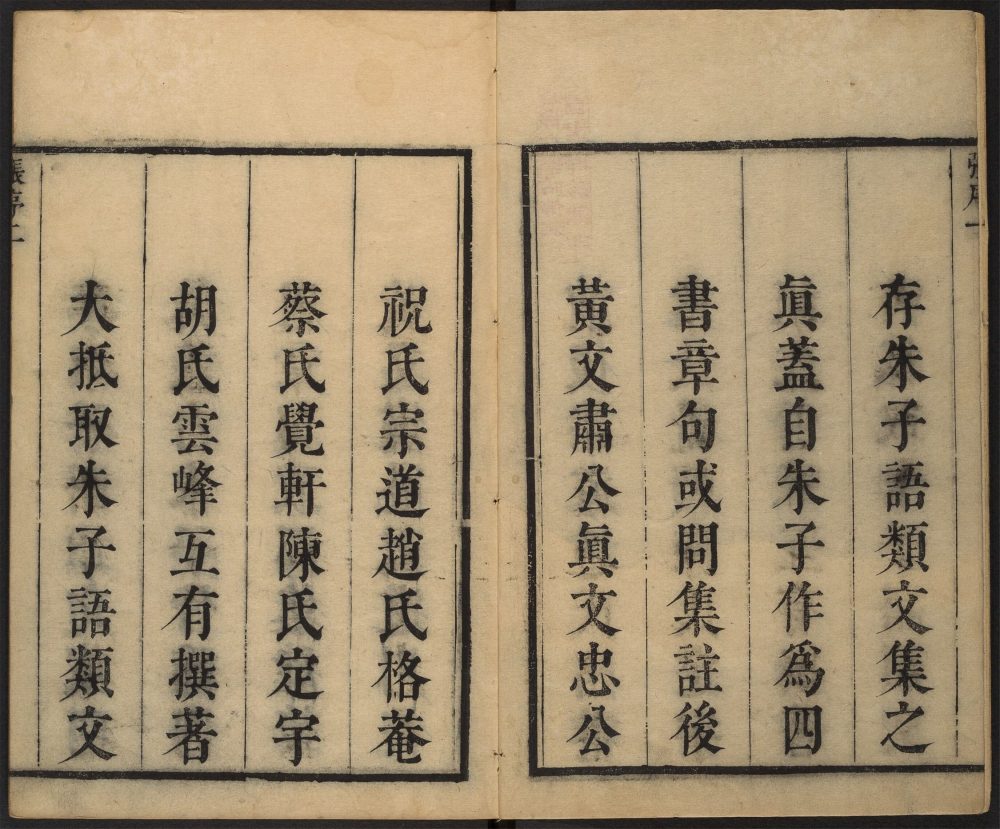 張序一
存朱子語類文集之
眞蓋自朱子作爲四
書章句或問集註後
黃文肅公眞文忠公
祝氏宗道趙氏格菴
蔡氏覺軒陳氏定宇
胡氏雲峰互有撰著
大抵取朱子語類文
張序二